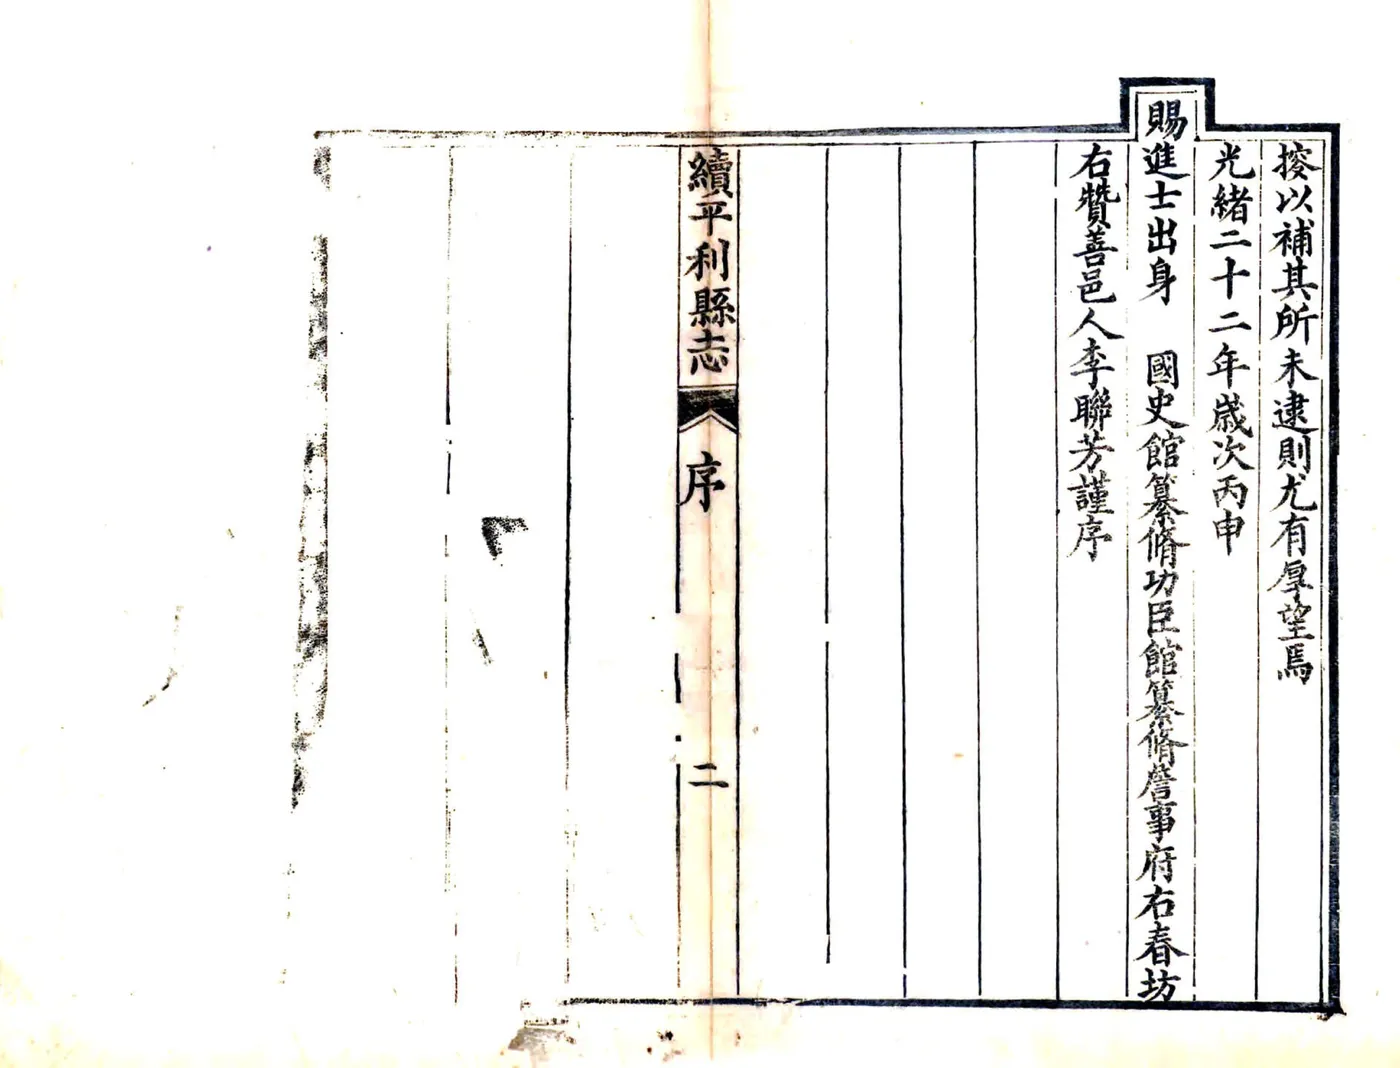 授以補其所未逮則尤有厚望焉
光緒二十二年歲次丙申
賜進士出身　國史館纂脩功臣館纂脩詹事府右春坊
右贊善邑人李聯芳謹序
續平利縣志
序
二